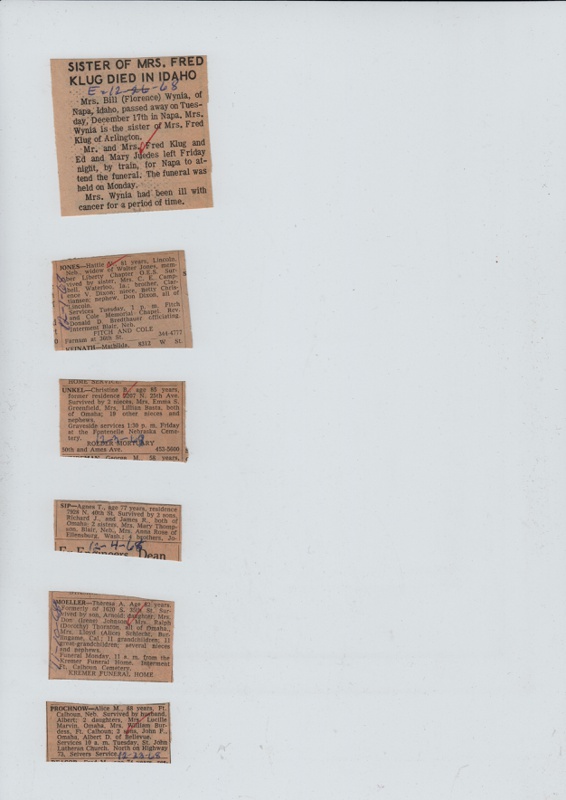 SISTER OF MRS. FRED
KLUG DIED IN IDAHO
E-12-26-68
Mrs. Bill (Florence) Wynia, of
Napa, Idaho, passed away on Tues-
day, December 17th in Napa. Mrs.
Wynia is the sister of Mrs. Fred
Klug of Arlington.
Mr. and Mrs. Fred Klug and
Ed and Mary Juedes left Friday
night, by train, for Napa to at-
tend the funeral. The funeral was
held on Monday.
Mrs. Wynia had been ill with
cancer for a period of time.
JONES—Hattie 81 years, Lincoln,
Neb., widow of Walter Jones, mem-
ber Liberty Chapter O.E.S. Sur-
vived by sister, Mrs. C. E. Camp-
bell, Waterloo, Ia.; brother, Clar-
ence V. Dixon; niece, Betty Chris-
tiansen; nephew, Don Dixon, all of
Lincoln.
Services Tuesday, 1 p. m. Fitch
and Cole Memorial Chapel. Rev.
Donald D. officiating.
Interment Blair, Neb.
FITCH AND COLE
Farnam at 30th St.
12-1-68
—Mathilde, 8312 W St.
HOME SERVICE.
UNKEL—Christine B., age 85 years,
former residence N. 25th Ave.
Survived by 2 nieces, Mrs. Emma S.
Greenfield, Mrs. Lillian Basta, both
of Omaha; 19 other nieces and
nephews.
Graveside services 1:30 p. m. Friday
at the Fontenelle Nebraska Ceme-
tery.
MORTUARY
50th and Ames Ave.
George H. 58 years,
SIP—Agnes T., age 77 years, residence
7928 N. 40th St. Survived by 2 sons,
Richard J., and James R., both of
Omaha; 2 sisters, Mrs. Mary Thomp-
son, Blair, Neb., Mrs. Anna Rose of
Ellensburg, Wash.; 4 brothers, Jo-
12-4-68
Dean
MOELLER—Theresa A. Age years.
Formerly of 1620 S. 35th St. Sur-
vived by son, Arnold; daughter, Mrs.
Dee (Irene) Johnston, Mrs. Ralph
(Dorothy) Thornton, all of Omaha,
Mrs. Lloyd (Alice) Schlecht, Bur-
lingame, Cal.; 11 grandchildren; 11
great-grandchildren; several nieces
and nephews.
Funeral Monday, 11 a. m. from the
Kremer Funeral Home. Interment
Ft. Calhoun Cemetery.
KREMER FUNERAL HOME
PROCHNOW—Alice M., 68 years, Ft.
Calhoun, Neb. Survived by husband,
Albert; 2 daughters, Mrs. Lucille
Marvin, Omaha, Mrs. William Bur-
dess, Ft. Calhoun; 2 sons, John F.,
Omaha, Albert D. of Bellevue.
Services 10 a. m. Tuesday, St. John
Lutheran Church. North on Highway
73, Seivers Service.
12-23-68